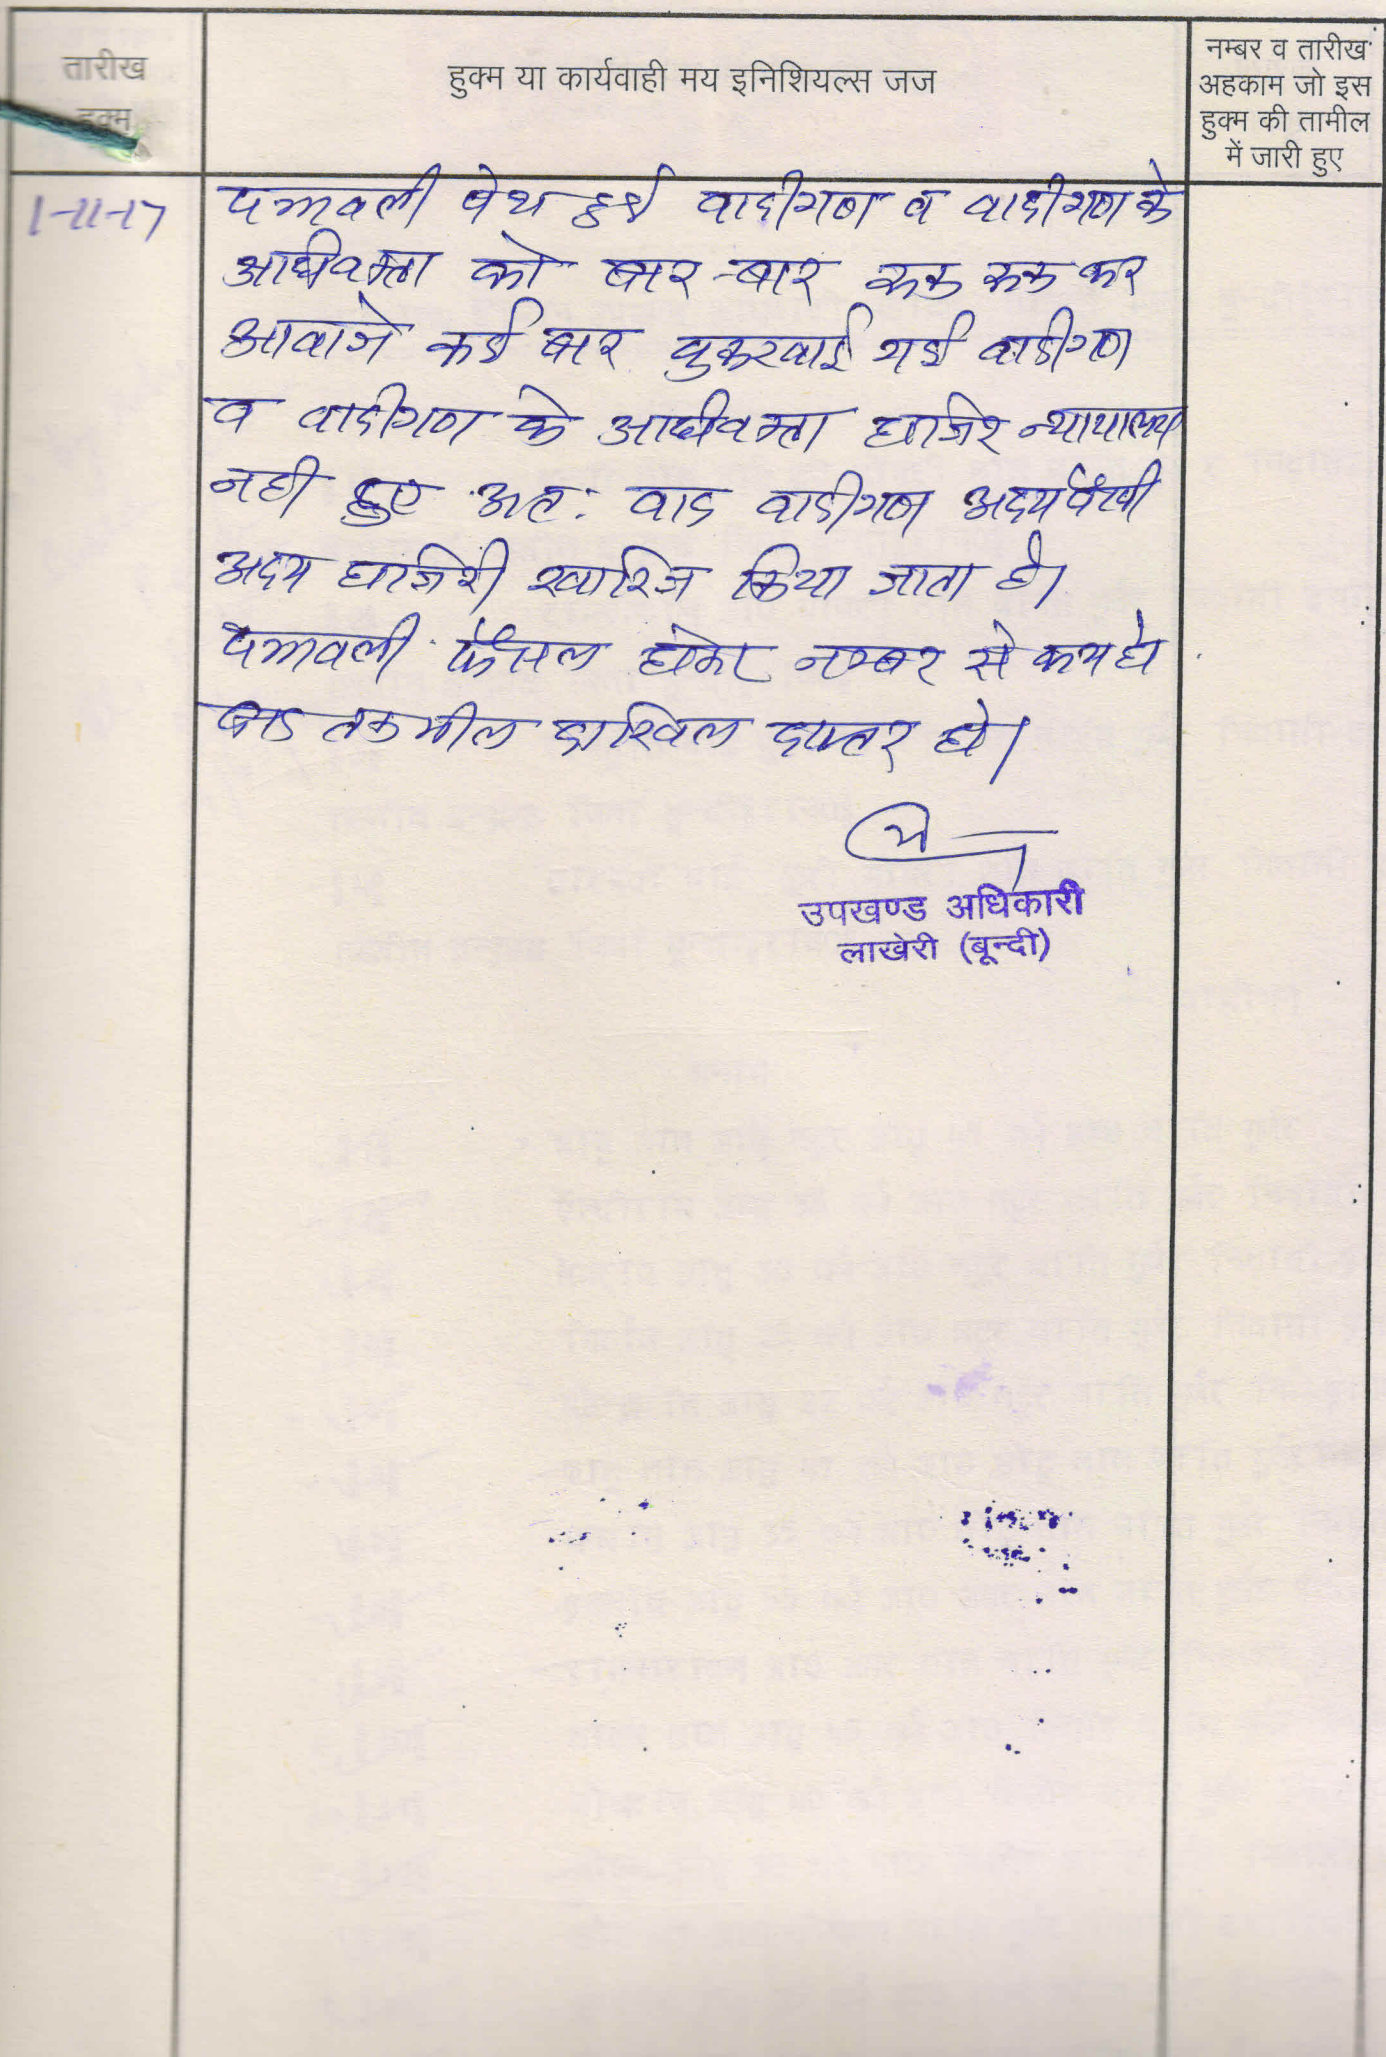 तारीख
हुक्म
हुक्म या कार्यवाही मय इनिशियल्स जज
नम्बर व तारीख
अहकाम जो इस
हुक्म की तामील
में जारी हुए
1-11-17
पत्रावली पेश हुई वादीगण व वादीगण के
अधिवक्ता को बार-बार रूक रूक कर
आवाजे कई बार पुकरवाई गई वादीगण
व वादीगण के अधिवक्ता हाजिर न्यायालय
नही हुए अत: वाद वादीगण अदमपैरवी
अदम हाजिरी खारिज किया जाता है।
पत्रावली फैसल होकर नम्बर से कम हो
बाद तकमील दाखिल दफ्तर हो।
उपखण्ड अधिकारी
लाखेरी (बून्दी)